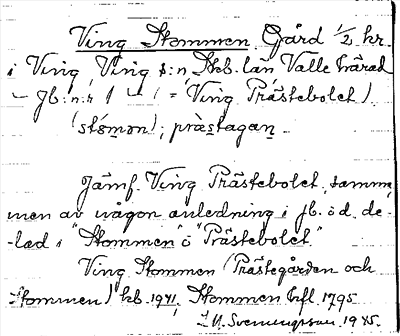 Ving Stommen Gård 1/2 hr.
i Ving, Ving s:n, Skb. län Valle härad
Jb:n:r ( = Ving Prästebolet).
(stómọn); præstagan.
Jämf. Ving Prästebolet, samma,
men av någon anledning i jb. ö d. de-
-lad i "Stommen" ö "Prästebolet."
Ving Stommen (Prästegården och
Stommen) kb. 1941, Stommen hfl. 1795
J. M. Svenungsson 1945.